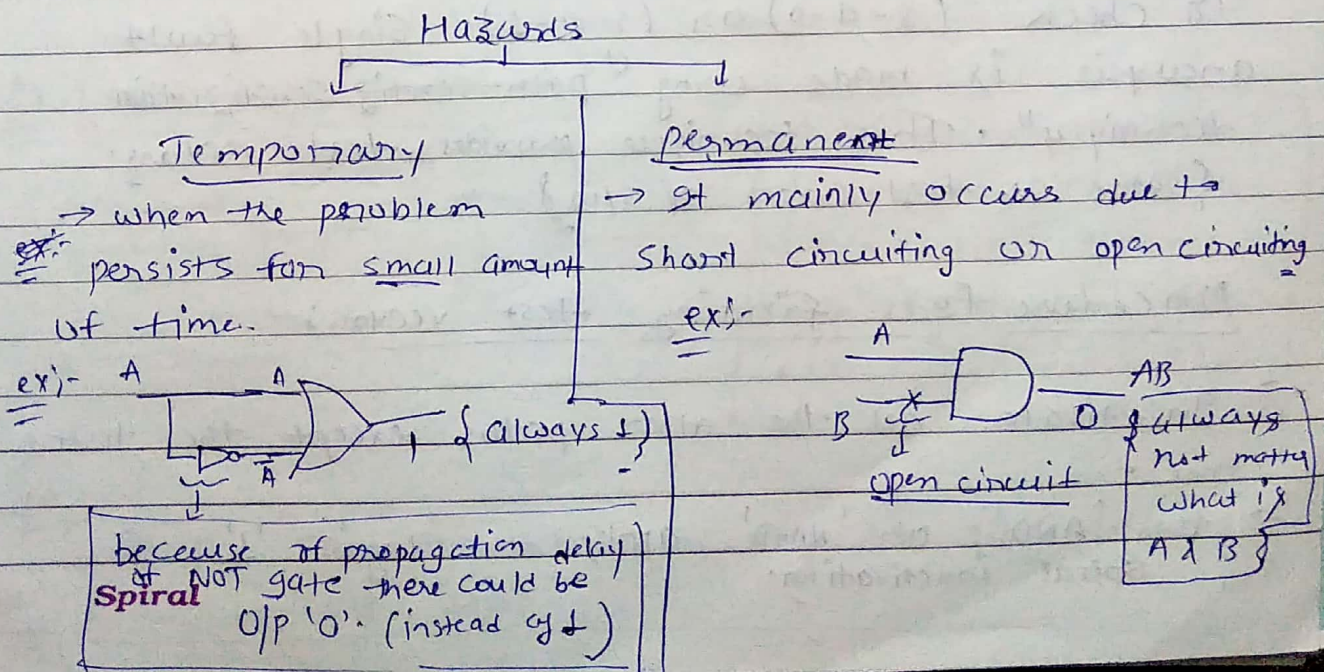 Hazards
Temporary
→ when the problem
ex:-
persists for small amount
of time.
ex:- A A
Ā
1 {always 1}
because of propagation delay
of NOT gate there could be
O/P '0'. (instead of 1)
Spiral
Permanent
→ It mainly occurs due to
Short circuiting or open circuiting
ex:-
A
B
AB
0 {always
not matter
what is
A & B}
open circuit